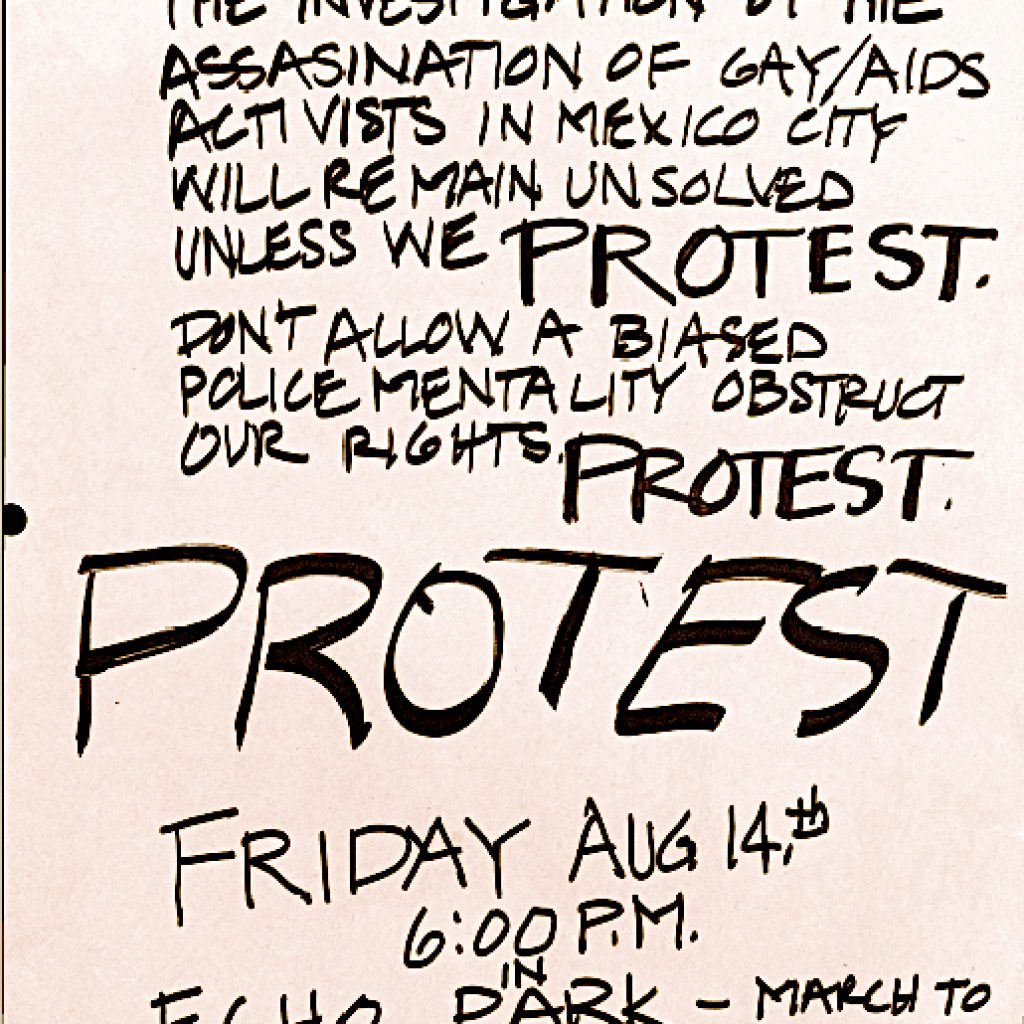 THE INVESTIGATION OF THE
ASSASINATION OF GAY/AIDS
ACTIVISTS IN MEXICO CITY
WILL REMAIN UNSOLVED
UNLESS WE PROTEST.
DON'T ALLOW A BIASED
POLICE MENTALITY OBSTRUCT
OUR RIGHTS. PROTEST.
PROTEST
FRIDAY AUG 14,th
6:00 P.M.
IN
ECHO PARK - MARCH TO